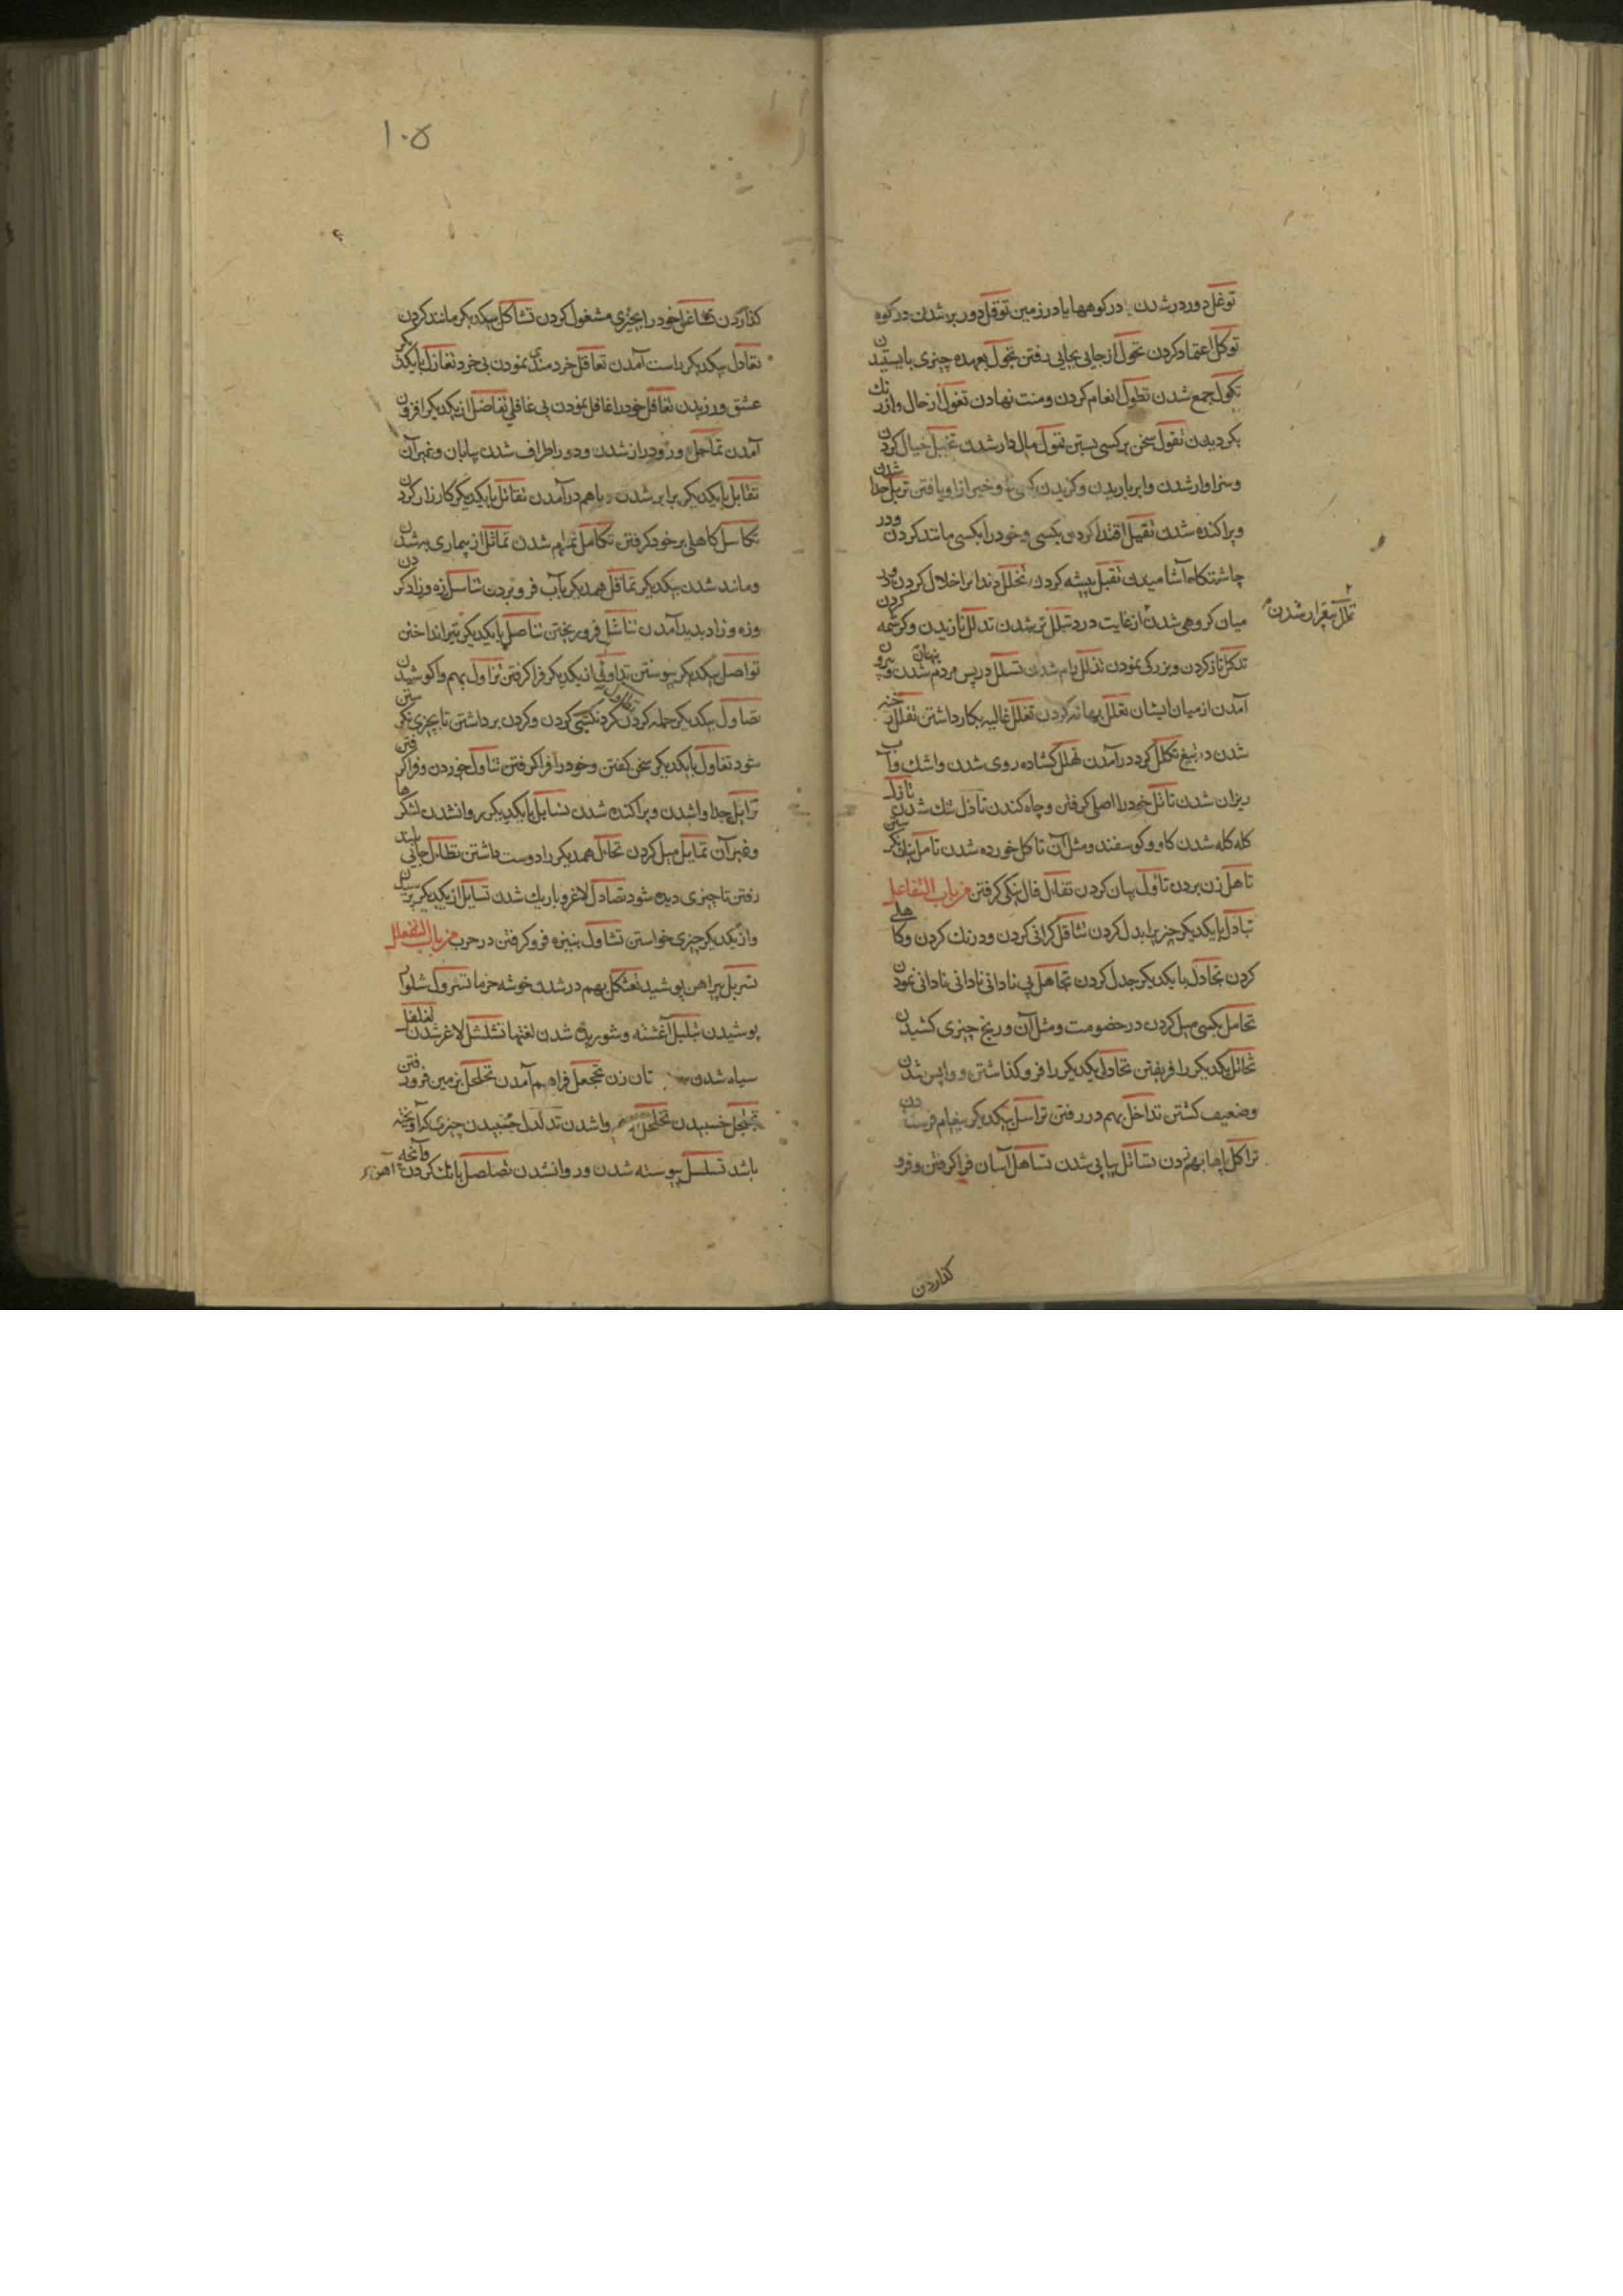 توغل دور در شدن در کوهها یا در زمین توقل دور بر شدن در کوه
توکل اعتماد کردن تحول از جایی بجایی رفتن تجول بعهده چیزی بایستیدن
تکول جمع شدن تطول انعام کردن و منت نهادن تغول از حال و از رنك
بکردیدن تقول سخن بر کسی بستن تمول مال دار شدن تخیل خیال کردن
و سزاوار شدن و ابر باریدن و کزیدن کسی و خیر از او یافتن تزیل جدا شدن
و پراکنده شدن تقیل اقتدا کردن بکسی و خود را بکسی مانند کردن و در
چاشتکاه آشامیدن تقبل پیشه کردن تخلل دندانرا خلال کردن
میان کروهی شدن از غایت درد تبلل تر شدن تدلل نازیدن و کرشمه کردن
تململ بیقرار شدن
تدکل ناز کردن و بزرکی نمودن تذلل رام شدن تسلل در پس مردم پنهان شدن و بیرون
آمدن از میان ایشان تعلل بهانه کردن تغلل غالیه بکار داشتن تفلل رخنه
شدن در تیغ تکلل کرد در آمدن تهلل کشاده روی شدن و اشك و آب
ریزان شدن تاثل خود را اصلی کرفتن و چاه کندن تازل تنك شدن
کله کله شدن کاو و کوسفند و مثل آن تاکل خورده شدن تامل نیك نکرستن
تاهل زن بردن تاول بیان کردن تفال فال نیکی کرفتن من باب التفاعل
تبادل بایکدیکر چیزیرا بدل کردن تثاقل کرانی کردن و درنك کردن و کاهلی
کردن تجادل بایکدیکر جدل کردن تجاهل بی نادانی نادانی نمودن
تحامل بکسی میل کردن در خصومت و مثل آن و رنج چیزی کشیدن
تخاتل یکدیکر را فریفتن تخاذل یکدیکر را فرو کذاشتن و واپس شدن
و ضعیف کشتن تداخل بهم در رفتن تراسل بیکدیکر پیغام فرستادن
تراکل پاها بهم زدن تساتل پیاپی شدن تساهل آسان فرا کرفتن و فرو
کذاردن
۱۰۵
کذاردن تشاغل خود را بچیزی مشغول کردن تشاکل بیکدیکر مانند کردن
تعادل بیکدیکر راست آمدن تعاقل خردمندی نمودن بی خرد تغازل بایکدیکر
عشق ورزیدن تغافل خود را غافل نمودن بی غافلی تفاضل از یکدیکر افزون
آمدن تماحل دور و دراز شدن و دور اطراف شدن بیابان و غیر آن
تقابل بایکدیکر برابر شدن و باهم در آمدن تقاتل بایکدیکر کارزار کردن
تکاسل کاهلی بر خود کرفتن تکامل تمام شدن تماثل از بیماری به شدن
و مانند شدن بیکدیکر تماقل همدیکر بآب فرو بردن تناسل زه و زاد کردن
و زه و زاد پدید آمدن تناثل فرو ریختن تناضل بایکدیکر تیر انداختن
تواصل بیکدیکر پیوستن تداول از یکدیکر فرا کرفتن تزاول بهم واکوشیدن
تصاول بیکدیکر حمله کردن تطاول کردنکشی کردن و کردن برداشتن تا بچیزی نکرستن
شود تقاول بایکدیکر سخن کفتن و خود را فرا کرفتن تناول خوردن و فرا کرفتن
تزایل جدا واشدن و پراکنده شدن تسایل بایکدیکر روانشدن لشکرها
و غیر آن تمایل میل کردن تخال همدیکر را دوست داشتن تطال جایی بلند
رفتن تا چیزی دیده شود تضاول لاغر و باریك شدن تسایل از یکدیکر پرسیدن
و از یکدیکر چیزی خواستن تشاول بنیزه فرو کرفتن در حرب من باب التفعلل
تسربل پیراهن پوشیدن تعثکل بهم در شدن خوشه خرما تسرول شلوار
پوشیدن تبلبل آغشته و شوریده شدن لغتها تشلشل لاغر شدن تفلفل
سیاه شدن تان زن تجحفل فراهم آمدن تخلخل بزمین فرو رفتن
تجلجل جنبیدن تحلحل واشدن تدلدل جنبیدن چیزی که آویخته
باشد تسلسل پیوسته شدن و روانشدن تصلصل بانك کردن آهن و آنچه